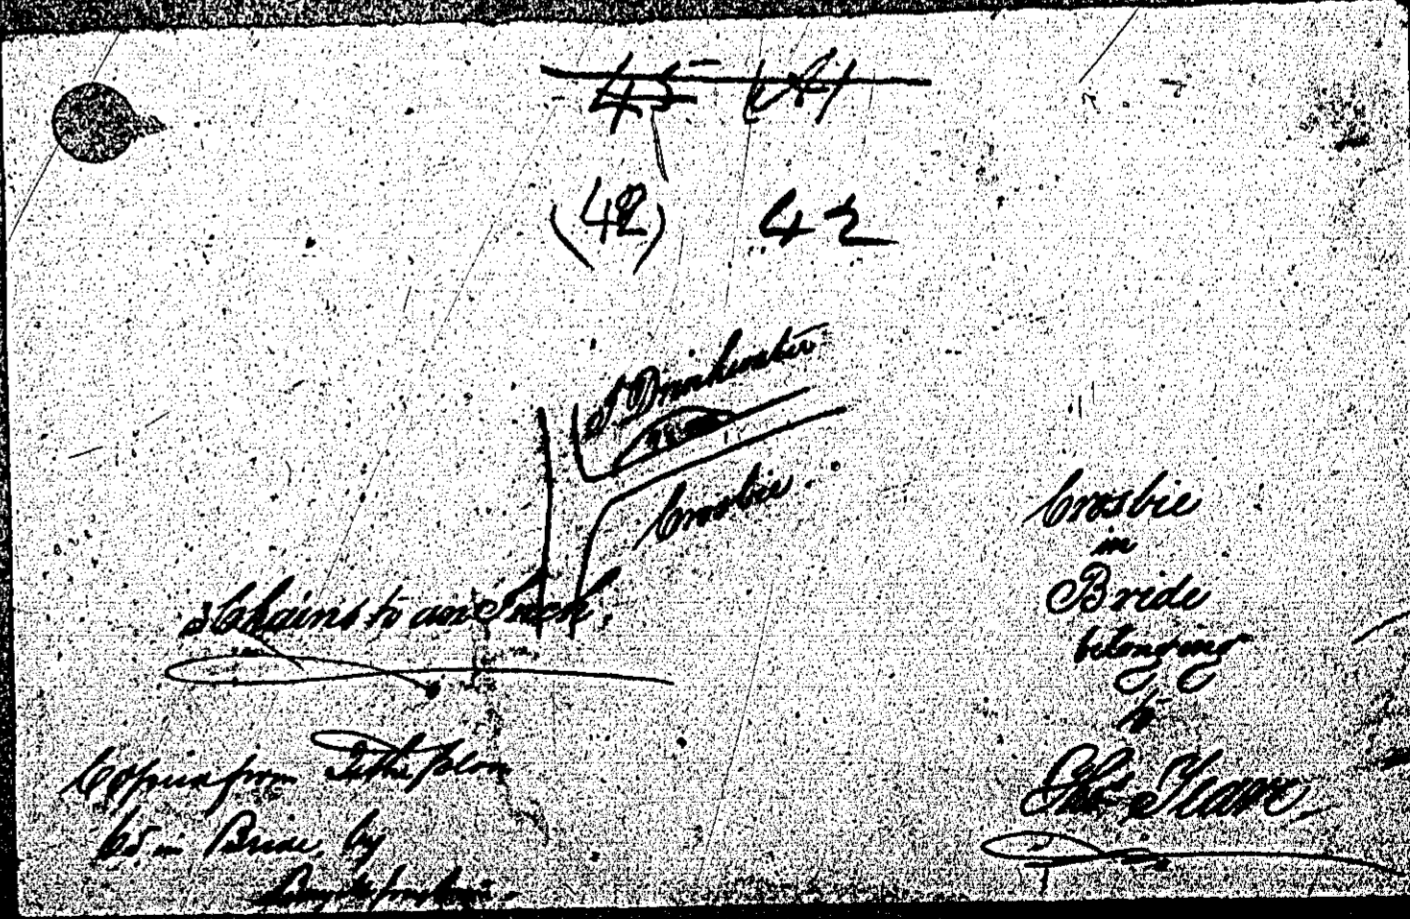 45 (41)
(42) 42
J Drinkwater
Crosbie.
3 Chains to an Inch.
Crosbie
in
Bride
belonging
to
Thos. Teare.
Copied from Tithe plan
in Bride, by